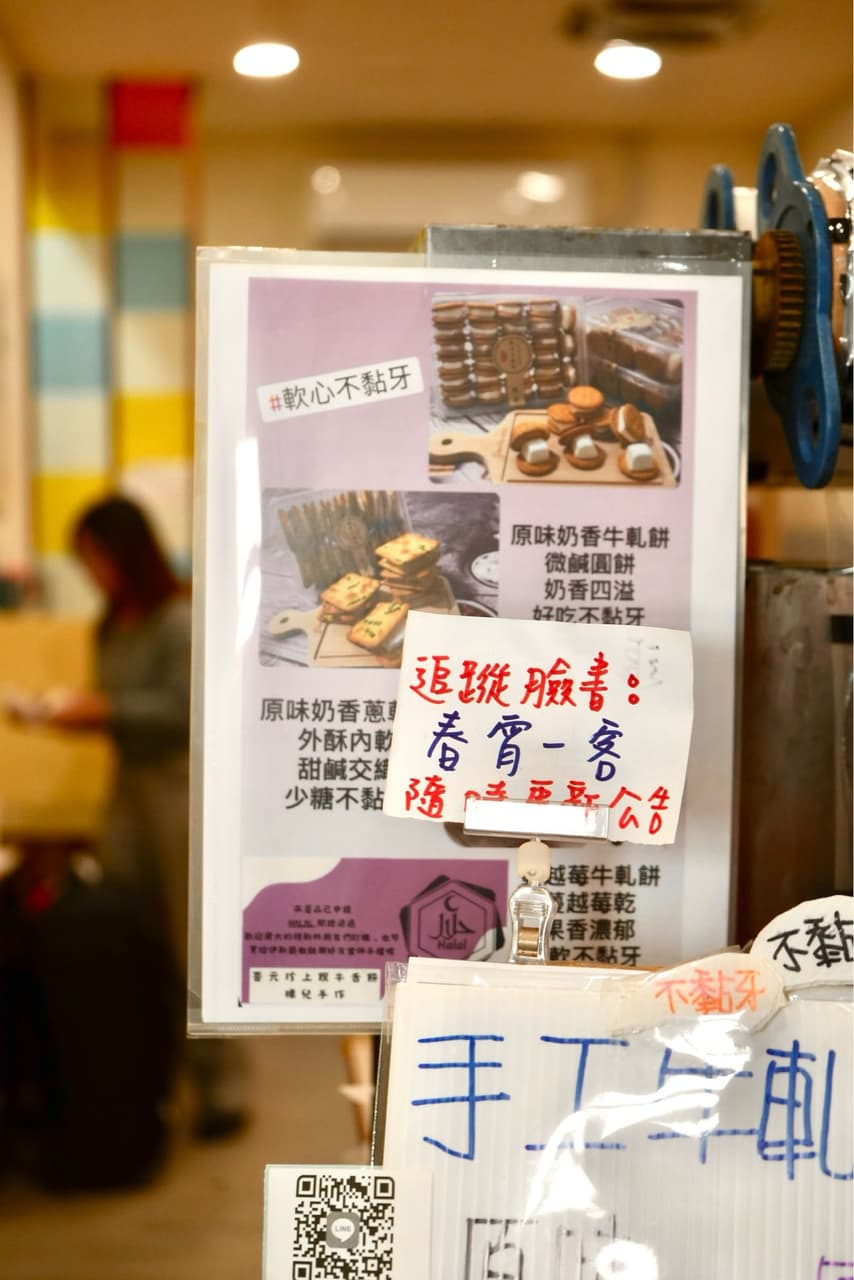 #軟心不黏牙
原味奶香牛軋餅
微鹹圓餅
奶香四溢
好吃不黏牙
原味奶香蔥
外酥內軟
甜鹹交織
少糖不黏
追蹤臉書:
春宵一客
隨時更新公告
越莓牛軋餅
蔓越莓乾
果香濃郁
軟不黏牙
HALAL
حلال
Halal
手作
不黏
不黏牙
手工牛軋
LINE